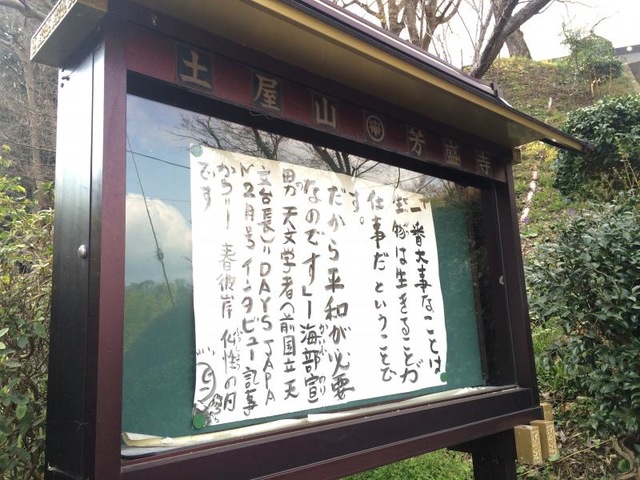 土屋山 芳盛寺
「一番大事なことは
生物は生きることが
仕事だということで
す。
だから平和が必要
なのです」ー海部宣
男 天文学者(前国立天
文台長)"DAYS JAPA
N"2月号インタビュー記事
からー 春彼岸 仏性の月
です